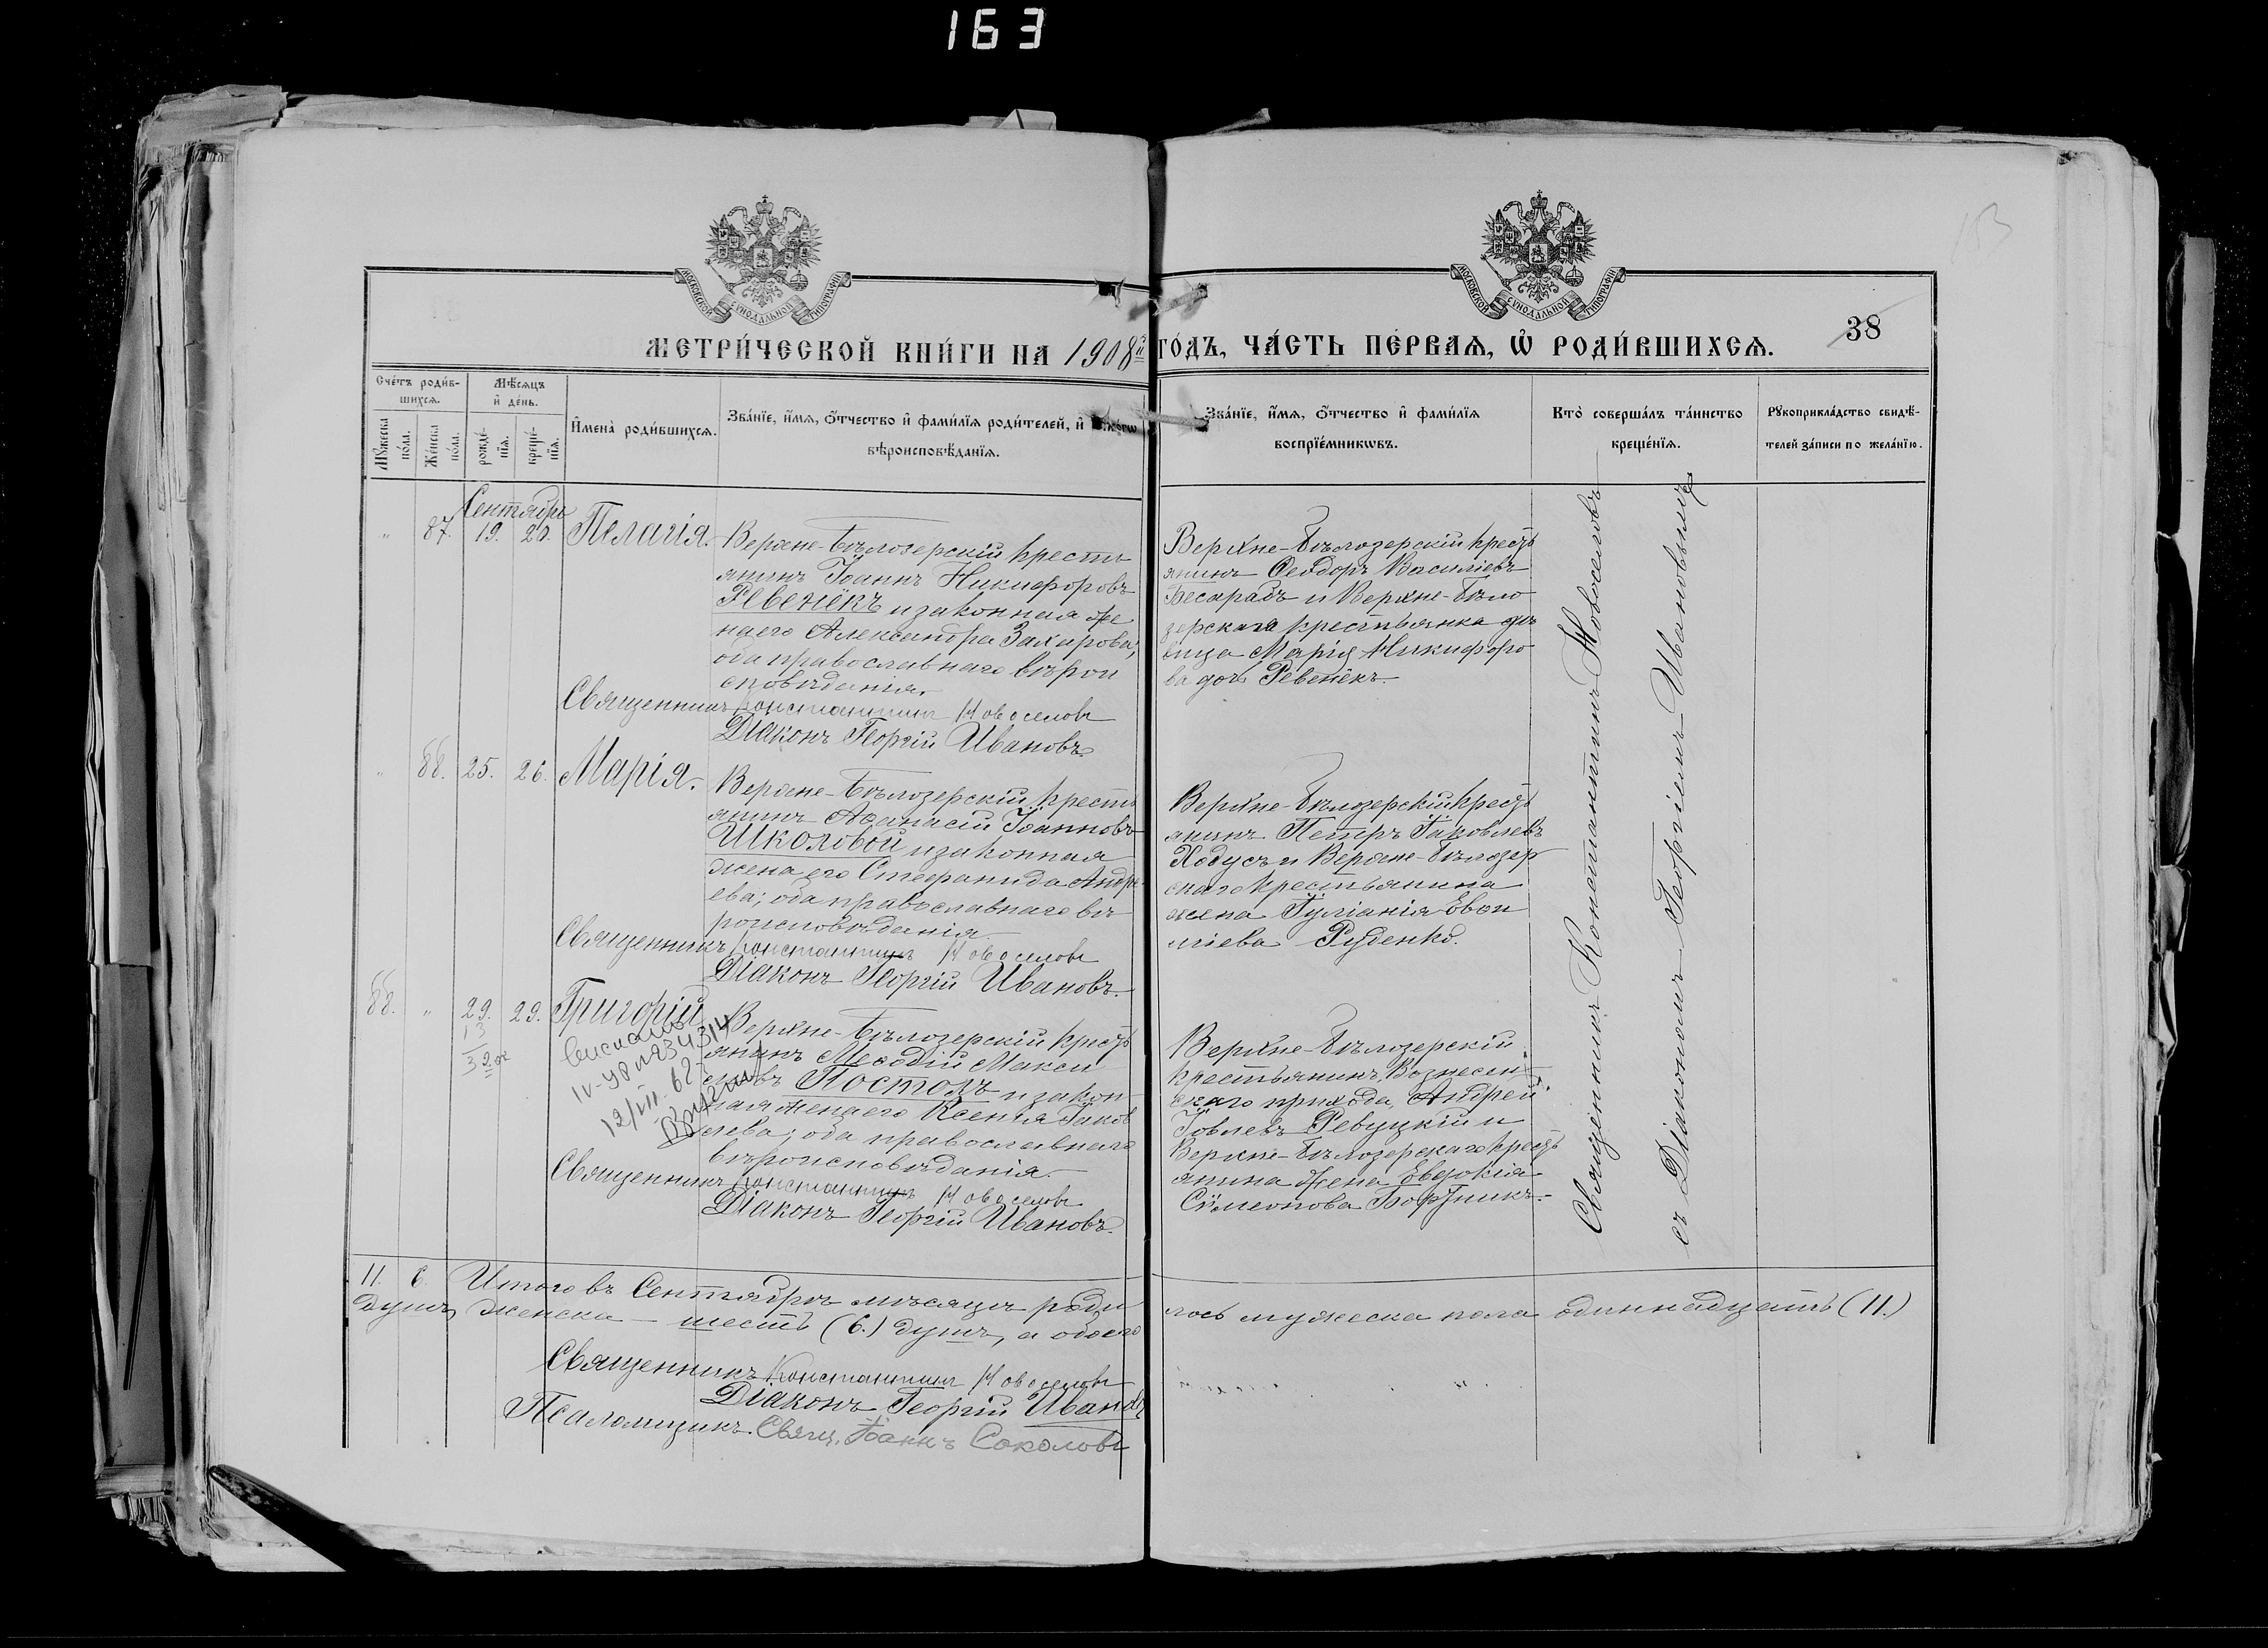 163
МОСКОВСКОЙ СУНОДАЛЬНОЙ ТИПОГРАФІИ
МОСКОВСКОЙ СУНОДАЛЬНОЙ ТИПОГРАФІИ
МЕТРИ́ЧЕСКОЙ КНИ́ГИ НА 1908й
ГО́ДЪ, ЧА́СТЬ ПЕ́РВАѦ, Ѡ҆ РОДИ́ВШИХСѦ.
38
Сче́тъ роди́в-
шихсѧ.
Мꙋ́жеска по́ла.
Же́нска по́ла.
Мѣ́сѧцъ
и҆ де́нь.
рожде́-нїѧ.
креще́-нїѧ.
И҆мена̀ роди́вшихсѧ.
Зва́нїе, и҆́мѧ, ѻ҆́тчество и҆ фами́лїѧ роди́телей, и҆
вѣроисповѣ́данїѧ.
Зва́нїе, и҆́мѧ, ѻ҆́тчество и҆ фами́лїѧ
воспрїе́мникѡвъ.
Кто̀ соверша́лъ та́инство
креще́нїѧ.
Рꙋкоприкла́дство свидѣ́-
телей за́писи по жела́нїю.
Сентябрь
" 87. 19. 20. Пелагія.
Верхне-Бѣлозерскій кресть
янинъ Іоаннъ Никифоровъ
Ревенёкъ и законная же
на его Александра Захарова;
оба православнаго вѣрои
сповѣданія.
Священникъ Константинъ Новоселовъ
Діаконъ Георгій Ивановъ
Верхне-Бѣлозерскій кресть
янинъ Ѳеодоръ Василіевъ
Бесарабъ и Верхне-Бѣло
зерская крестьянка дѣ
вица Марія Никифоро
ва дочь Ревенёкъ.
" 88. 25. 26. Марія.
Верхне-Бѣлозерскій кресть
янинъ Аѳанасій Іоанновъ
Школовой и законная
жена его Стефанида Андре
ева; оба православнаго вѣ
роисповѣданія
Священникъ Константинъ Новоселовъ
Діаконъ Георгій Ивановъ.
Верхне-Бѣлозерскій кресть
янинъ Петръ Іаковлевъ
Ходусъ и Верхне-Бѣлозер
скаго крестьянина
жена Іуліанія
Руденко.
88. " 29. 29. Григорій
13
32
12/VIII. 62 г.
Верхне-Бѣлозерскій кресть
янинъ Меѳодій Макси
мовъ Постолъ и закон
ная жена его Ксенія Іаков
лева; оба православнаго
вѣроисповѣданія.
Священникъ Константинъ Новоселовъ
Діаконъ Георгій Ивановъ.
Верхне-Бѣлозерскій
крестьянинъ, Вознесен
скаго прихода, Андрей
Ревуцкій и
Верхне-Бѣлозерскаго кресть
янина жена Евдокія
Сѵмеонова
Священникъ Константинъ Новоселовъ
съ Діакономъ Георгіемъ Ивановымъ
11. 6. Итого въ Сентябрѣ мѣсяцѣ роди
лось мужеска пола одиннадцать (11.)
душъ, женска — шесть (6.) душъ, а обоего
Священникъ Константинъ Новоселовъ
Діаконъ Георгій Ивановъ
Псаломщикъ. Свящ. Іоаннъ Соколовъ